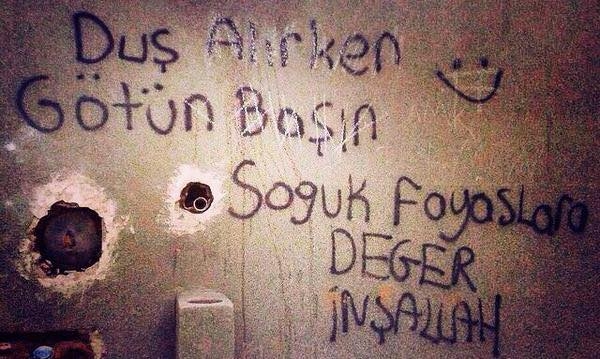 Duş Alırken
Götün Başın
Soguk fayaslara
DEGER
İNŞALLAH